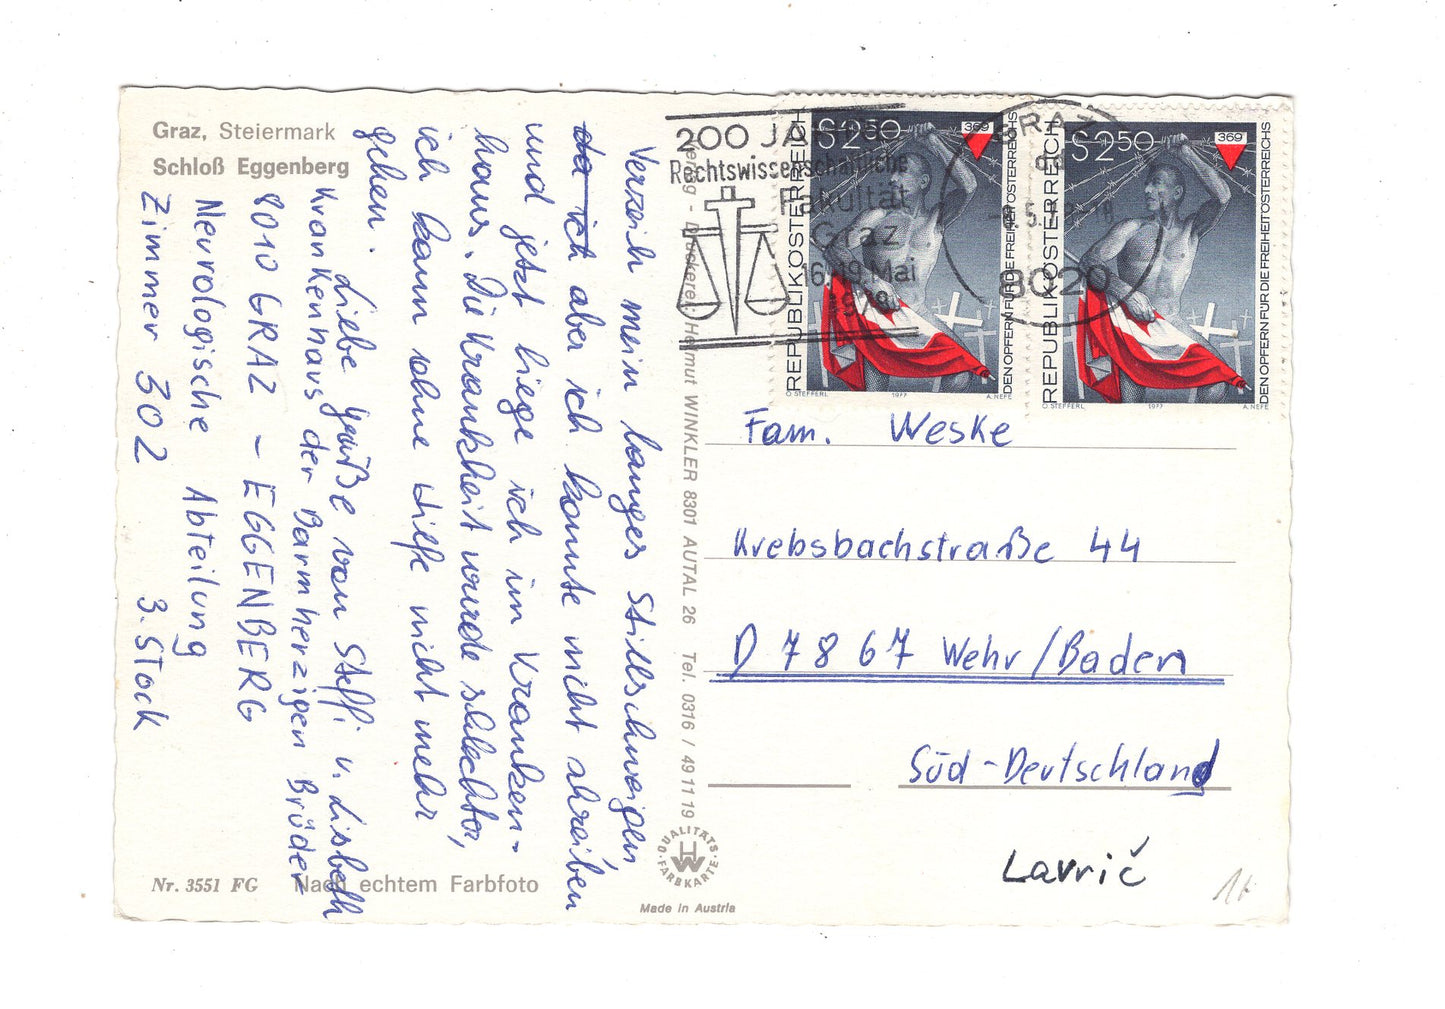 Graz, Steiermark
Schloß Eggenberg
Verzeih mein langes Stillschweigen,
da ich aber ich konnte nicht schreiben
und jetzt liege ich im Kranken-
haus. Die Krankheit wurde schlechter,
ich kann ohne Hilfe nicht mehr
gehen.
Liebe Grüße von Steffi u. Lisbeth
Krankenhaus der Barmherzigen Brüder
8010 GRAZ - EGGENBERG
Neurologische Abteilung
Zimmer 302 3. Stock
Nr. 3551 FG Nach echtem Farbfoto
Verlag - Druckerei: Helmut WINKLER 8301 AUTAL 26 Tel. 0316 / 49 11 19
QUALITÄTS-
FARBKARTE
HW
Made in Austria
200 JAHRE
Rechtswissenschaftliche
Fakultät
Graz
16.-19. Mai
1978
GRAZ
8020
S 2.50
369
REPUBLIK ÖSTERREICH
DEN OPFERN FÜR DIE FREIHEIT ÖSTERREICHS
O. STEFFERL 1977 A. NEFE
S 2.50
369
REPUBLIK ÖSTERREICH
DEN OPFERN FÜR DIE FREIHEIT ÖSTERREICHS
O. STEFFERL 1977 A. NEFE
Fam. Weske
Krebsbachstraße 44
D 7867 Wehr/Baden
Süd-Deutschland
Lavrič